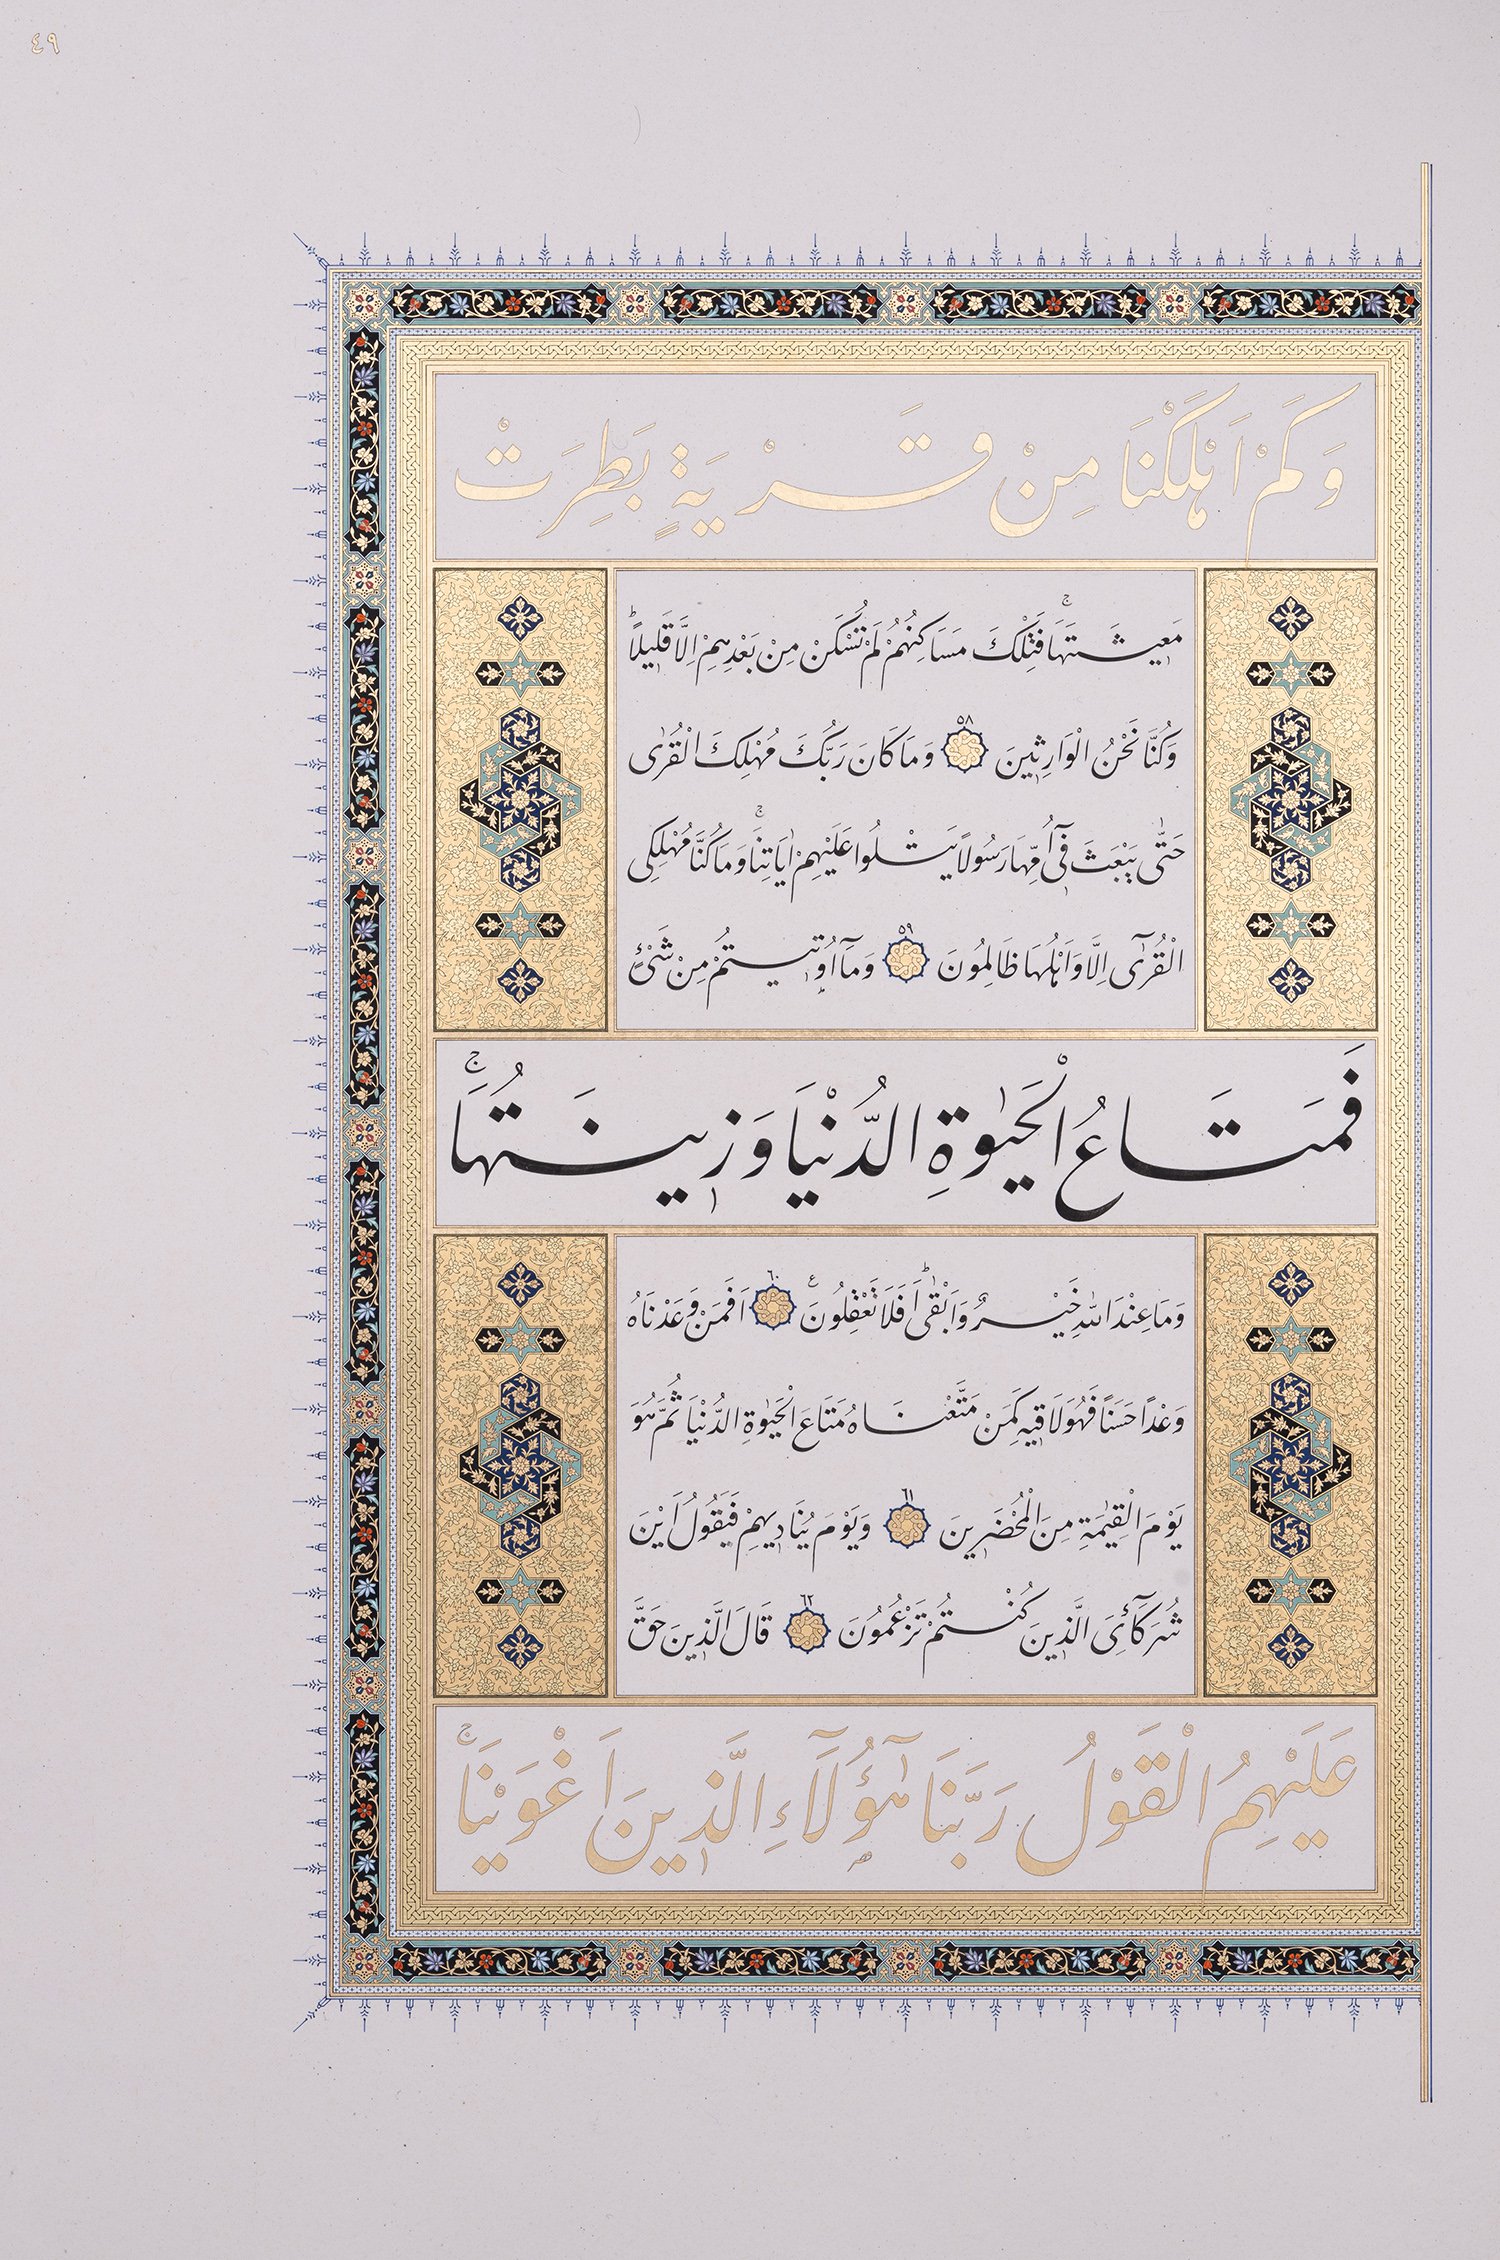 ٤٩
وَكَمْ اَهْلَكْنَا مِنْ قَرْيَةٍ بَطِرَتْ
مَعٖيشَتَهَاۚ فَتِلْكَ مَسَاكِنُهُمْ لَمْ تُسْكَنْ مِنْ بَعْدِهِمْ اِلَّا قَلٖيلاًؕ
وَكُنَّا نَحْنُ الْوَارِثٖينَ ٥٨ وَمَا كَانَ رَبُّكَ مُهْلِكَ الْقُرٰى
حَتّٰى يَبْعَثَ فٖٓى اُمِّهَا رَسُولاً يَتْلُوا عَلَيْهِمْ اٰيَاتِنَاۚ وَمَا كُنَّا مُهْلِكِى
الْقُرٰٓى اِلَّا وَاَهْلُهَا ظَالِمُونَ ٥٩ وَمَٓا اُوتٖيتُمْ مِنْ شَىْءٍ
فَمَتَاعُ الْحَيٰوةِ الدُّنْيَا وَزٖينَتُهَاۚ
وَمَا عِنْدَ اللّٰهِ خَيْرٌ وَاَبْقٰىؕ اَفَلَا تَعْقِلُونَ ٦٠ اَفَمَنْ وَعَدْنَاهُ
وَعْداً حَسَناً فَهُوَ لَاقٖيهِ كَمَنْ مَتَّعْنَاهُ مَتَاعَ الْحَيٰوةِ الدُّنْيَا ثُمَّ هُوَ
يَوْمَ الْقِيٰمَةِ مِنَ الْمُحْضَرٖينَ ٦١ وَيَوْمَ يُنَادٖيهِمْ فَيَقُولُ اَيْنَ
شُرَكَٓاءِىَ الَّذٖينَ كُنْتُمْ تَزْعُمُونَ ٦٢ قَالَ الَّذٖينَ حَقَّ
عَلَيْهِمُ الْقَوْلُ رَبَّنَا هٰٓؤُلَٓاءِ الَّذٖينَ اَغْوَيْنَاۚ